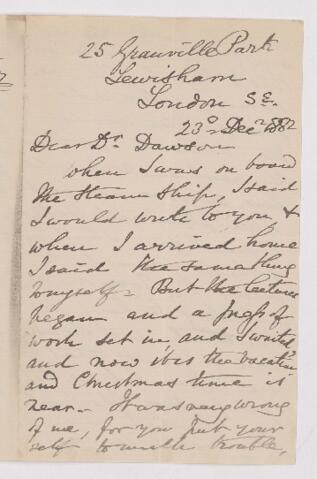 25 Granville Park
Lewisham
London S.E.
23d Decr 1882
Dear Dr Dawson
When I was on board
the Steam Ship, I said
I would write to you, &
when I arrived home
I said the same thing
to myself - But the lectures
began and a press of
work set in, and I waited
and now it is the vacation
and Christmas time is
near - It was very wrong
of me, for you put your
self to much trouble,